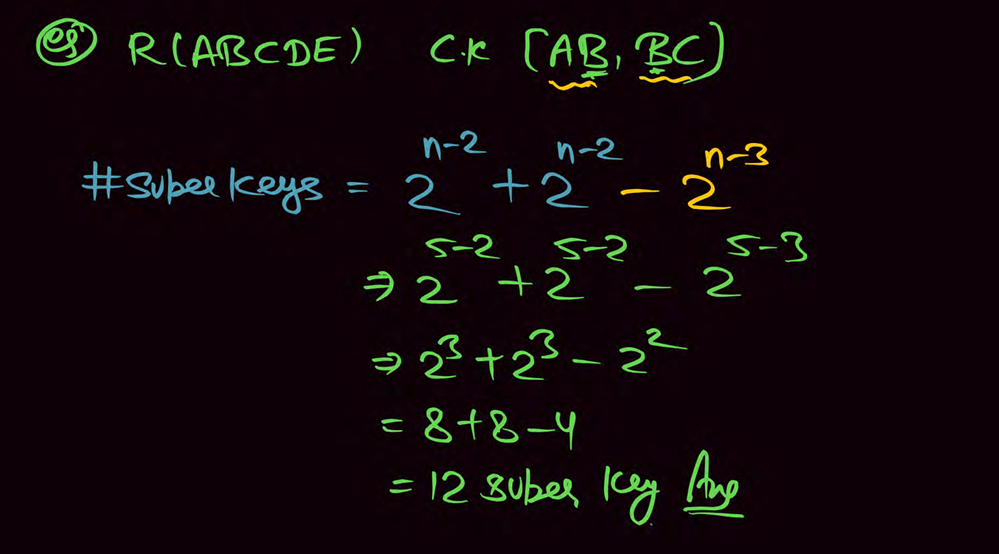 eg R(ABCDE) C.K [AB, BC]
#Super keys = 2^{n-2} + 2^{n-2} - 2^{n-3}
⇒ 2^{5-2} + 2^{5-2} - 2^{5-3}
⇒ 2^3 + 2^3 - 2^2
= 8+8-4
= 12 super key Ans